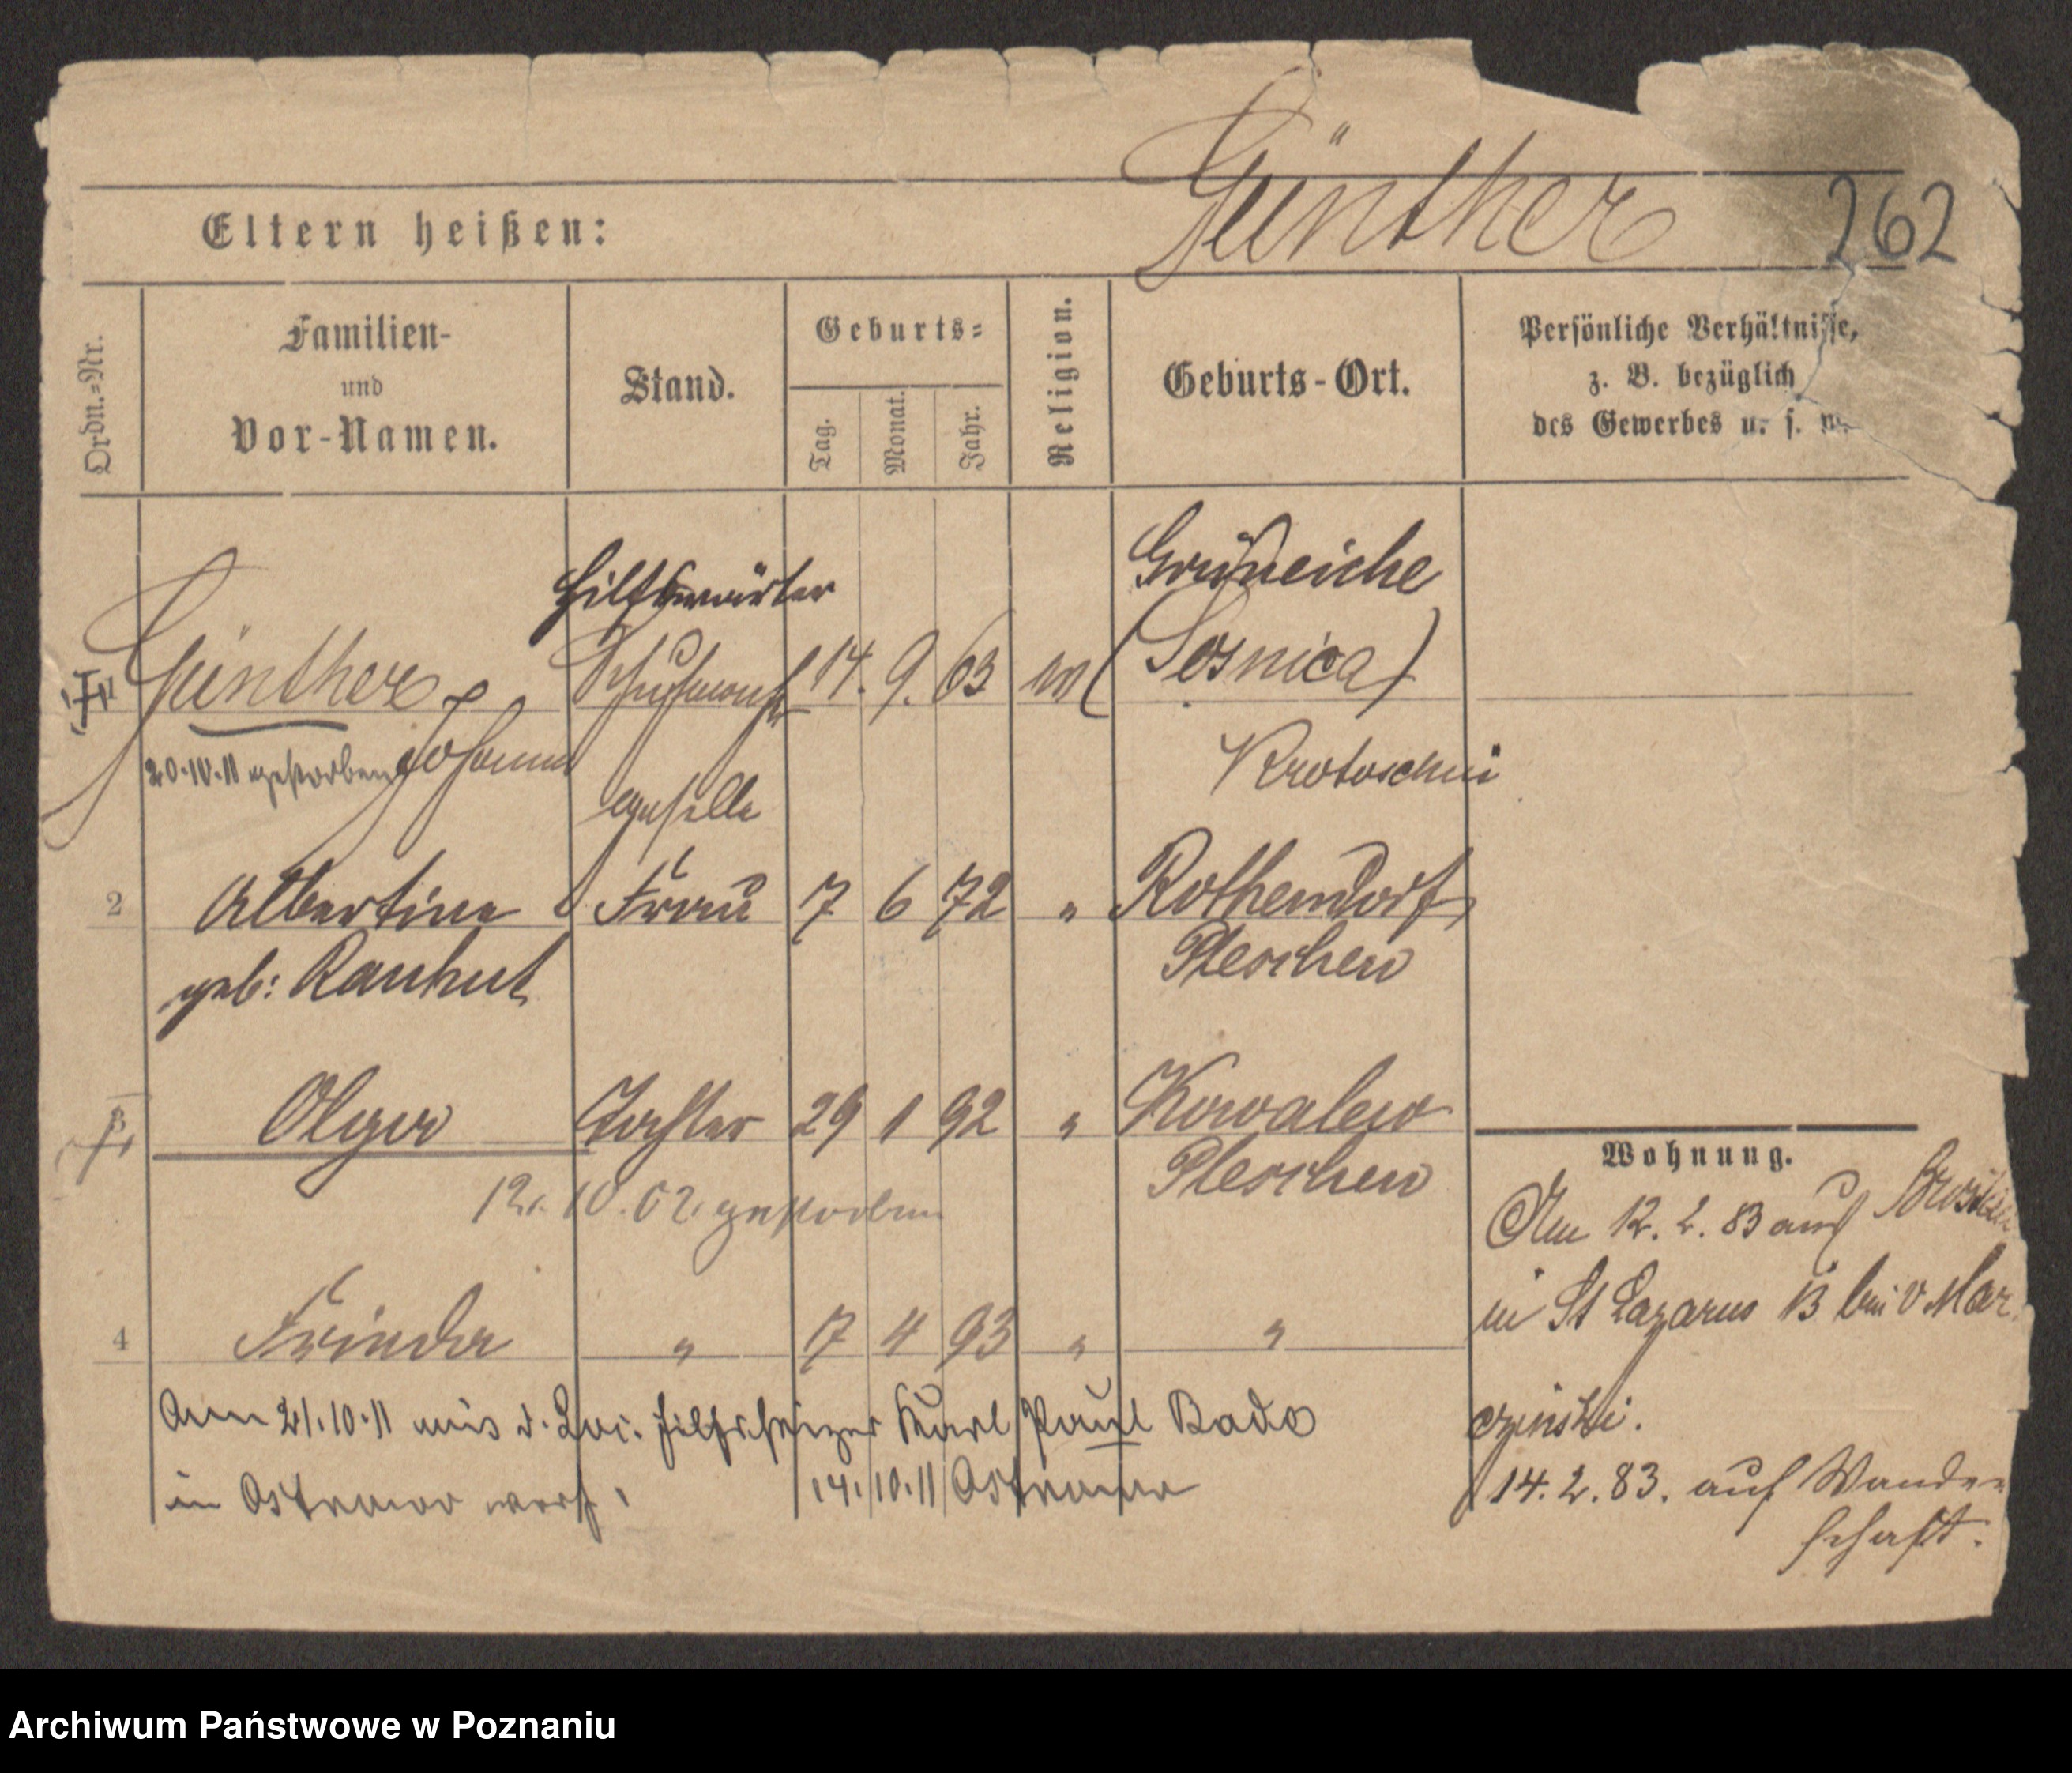 Günther 262
Eltern heißen:
Ordn.=Nr.
Familien-
und
Vor-Namen.
Stand.
Geburts=
Tag.
Monat.
Jahr.
Religion.
Geburts-Ort.
Persönliche Verhältnisse,
z. B. bezüglich
des Gewerbes u. s. w.
Hilfswärter
Grüneiche
Günther, Schuhmacher 14. 9. 63 (Sosnica)
20.10.11 gestorben Johann
Krotoschin
geselle
2 Albertine Frau 7 6 72 " Rothendorf
geb: Rauhut Pleschen
3 Olga Tochter 29 1 92 " Kowalew
Pleschen
12.10.02. gestorben
4 Frieda " 17 4 93 " "
Am 21.10.11 mis d. Loc. Hilfsheizer Karl Paul Bado
in Ostrowo verh. 14.10.11 Ostrowo
Wohnung.
Am 12. 2. 83 aus
in St Lazarus 13 bei v Mar
czinski.
14. 2. 83. auf Wander
schaft.
Archiwum Państwowe w Poznaniu